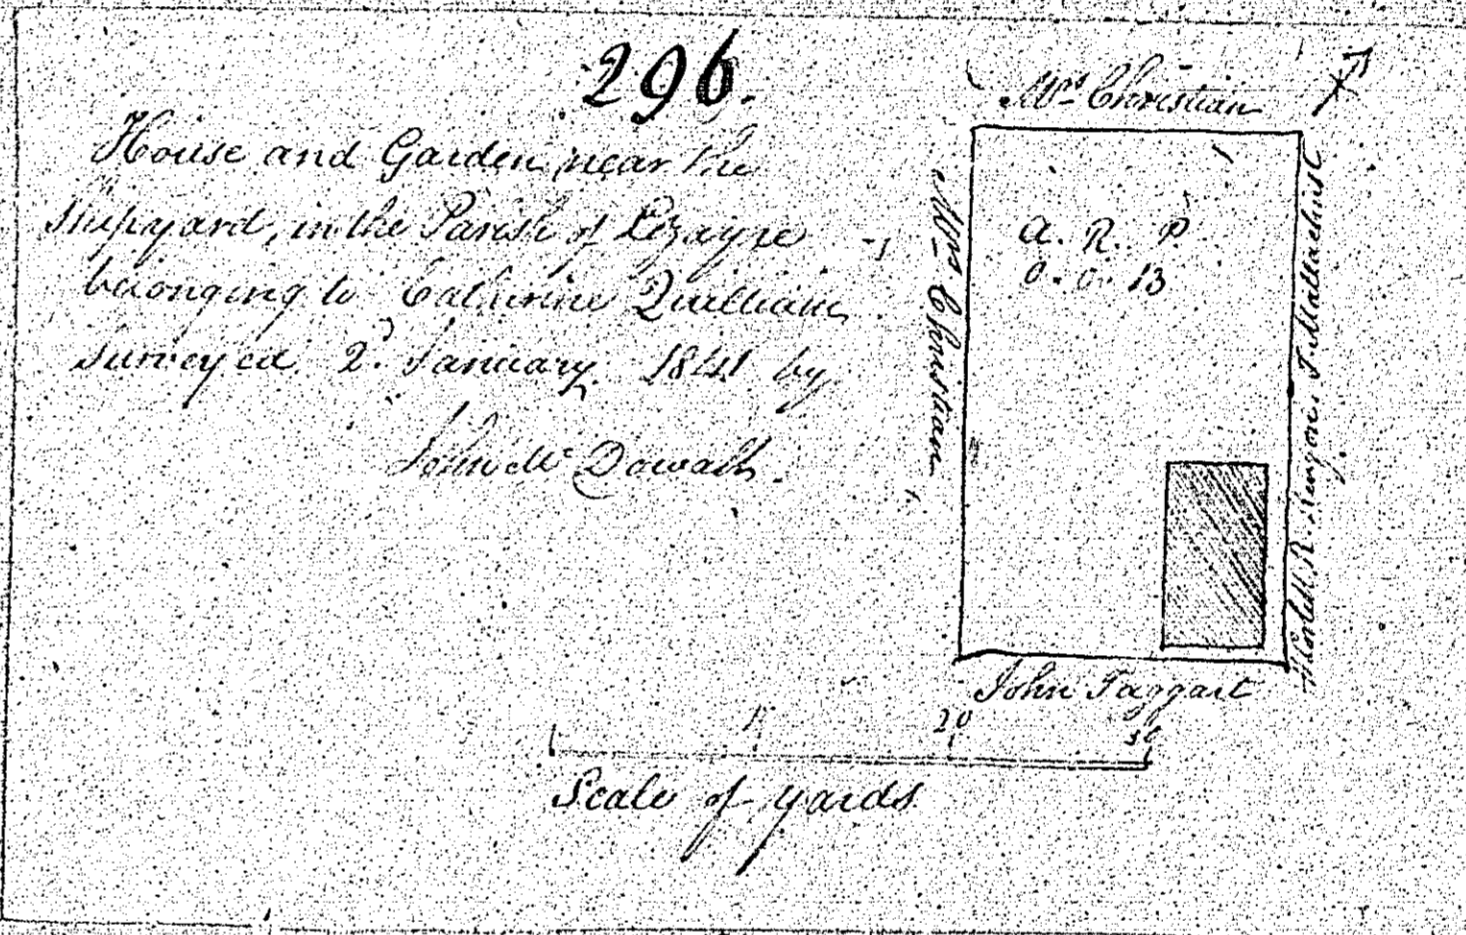 296.
House and Garden near the
Shipyard, in the Parish of Lezayre
belonging to Catherine Quilliam
surveyed 2d. January 1841 by
John Mc Dowall.
Mrs Christian
Mrs Christian
A. R. P
0. 0. 13
John Taggart
20
30
Scale of yards